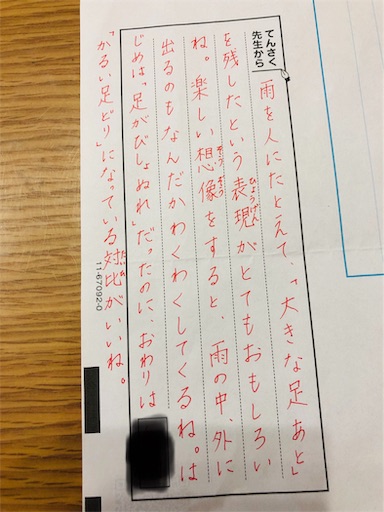 てんさく
先生から
雨を人にたとえて、「大きな足あと」
を残したという表現がとてもおもしろい
ね。楽しい想像をすると、雨の中、外に
出るのもなんだかわくわくしてくるね。は
じめは「足がびしょぬれ」だったのに、おわりは
「かるい足どり」になっている対比がいいね。
11-67092-0